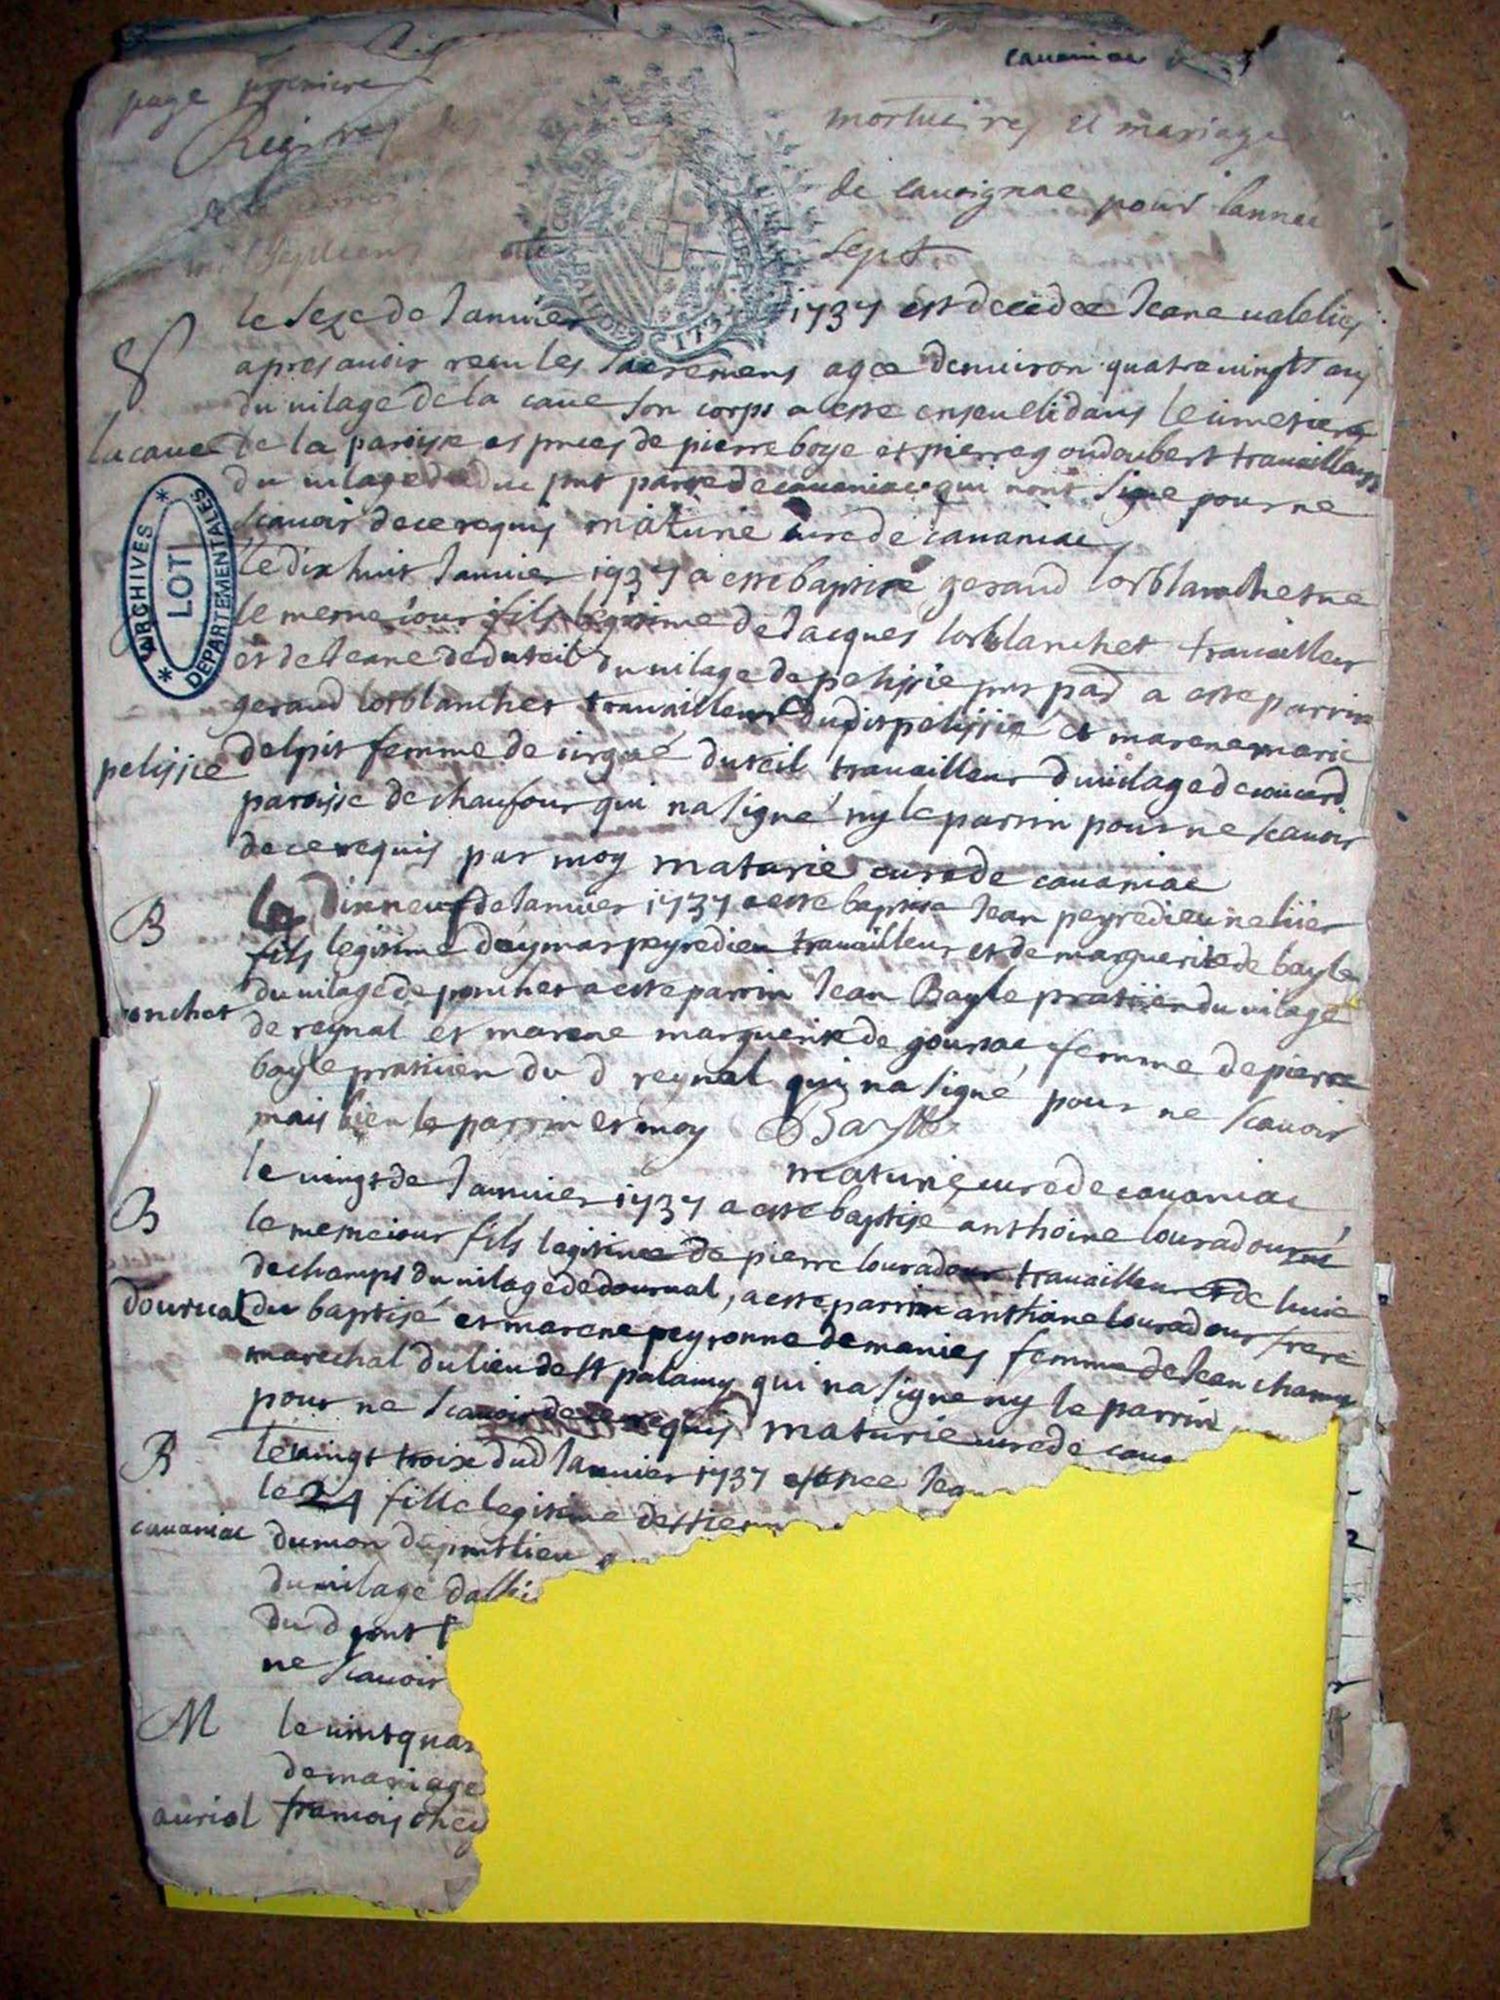 cavaniac
page premiere
Registres des mortuaires et mariage
de cavaignac pour lannee
mil sept cens sept
le seze de Janvier 1737 est decedee Jeane
apres avoir receu les sacremens agee denviron quatre vingts ans
du vilage de la cave son corps a este enseveli dans le cimetiere
lacave
de la paroisse es presces de pierre boye et pierre goudoubert travailleurs
du vilage du pnt parse de cavaniac qui nont signe pour ne
scavoir de ce requis maturie cure de cavaniac
le dix huit Janvier 1737 a este baptisé geraud lorblanchet ne
le meme iour fils legitime de Jacques lorblanchet travailleur
et de Jeane deduteil du vilage de pelissie pnt par a este parrin
geraud lorblanchet travailleur dudit pelissie et marene marie
pelissie
delpit femme de cirgué duteil travailleur du vilage de
paroisse de chaufour qui na signé ny le parrin pour ne scavoir
de ce requis par moy maturie cure de cavaniac
B
Le Dixneuf de Janvier 1737 a este baptise Jean peyredieu ne hier
fils legitime daymar peyredieu travailleur et de marguerite de bayle
onchet
du vilage de ponchet a este parrin Jean Bayle pratitien du vilage
de reynal et marene marguerite de goursac femme de pierre
bayle pratitien du d reynal qui na signé pour ne scavoir
mais bien le parrin et moy Bayle
maturie cure de cavaniac
le vingt de Janvier 1737 a este baptise anthoine louradour né
B
le meme iour fils legitime de pierre louradour travailleur et de
dechamps du vilage de dournal, a este parrin anthoine louradour frere
dournal
du baptisé et marene peyronne demanies femme de Jean champ
marechal du lieu de st palamy qui na signe ny le parrin
pour ne scavoir de ce requis maturie cure de cava
B
le vingt troix dud Janvier 1737 est nee Jea
le 24 fille legitime
cavaniac
dumon du pnt lieu
du vilage
du d pnt
ne scavoir
M
le vint quat
de mariage
auriol
francois chey
ARCHIVES DEPARTEMENTALES
LOT